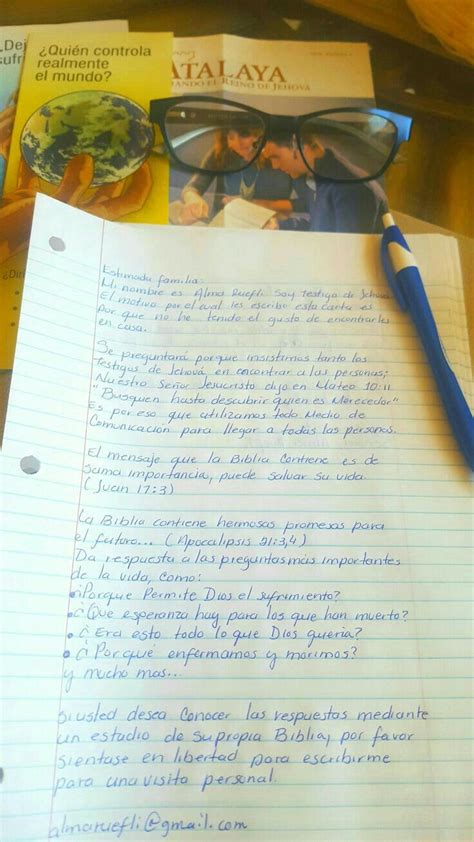 ¿Quién controla
realmente
el mundo?
ATALAYA
Estimada familia:
Mi nombre es Alma Ruefli Soy Testigo de Jehová
El motivo por el cual les escribo esta carta es
por que no he tenido el gusto de encontrarles
en casa.
Se preguntará porque insistimos tanto los
Testigos de Jehová en encontrar a las personas;
Nuestro Señor Jesucristo dijo en Mateo 10:11
"Busquen hasta descubrir quien es Merecedor"
Es por eso que utilizamos todo Medio de
Comunicación para llegar a todas las personas.
El mensaje que la Biblia Contiene es de
Suma importancia, puede salvar su vida.
(Juan 17:3)
La Biblia contiene hermosas promesas para
el futuro... (Apocalipsis 21:3,4)
Da respuesta a las preguntas más importantes
de la vida, como:
¿Porque Permite Dios el sufrimiento?
• ¿Que esperanza hay para los que han muerto?
• ¿ Era esto todo lo que Dios queria?
• ¿ Por qué enfermamos y morimos?
y mucho mas...
Si usted desea Conocer las respuestas mediante
un estudio de su propia Biblia, por favor
sientase en libertad para escribirme
para una visita personal.
almaruefli@gmail.com